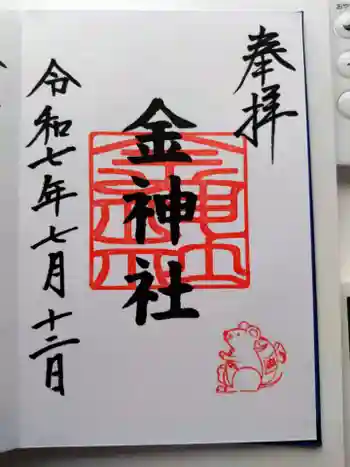 奉拝
金神社
令和七年七月十二日